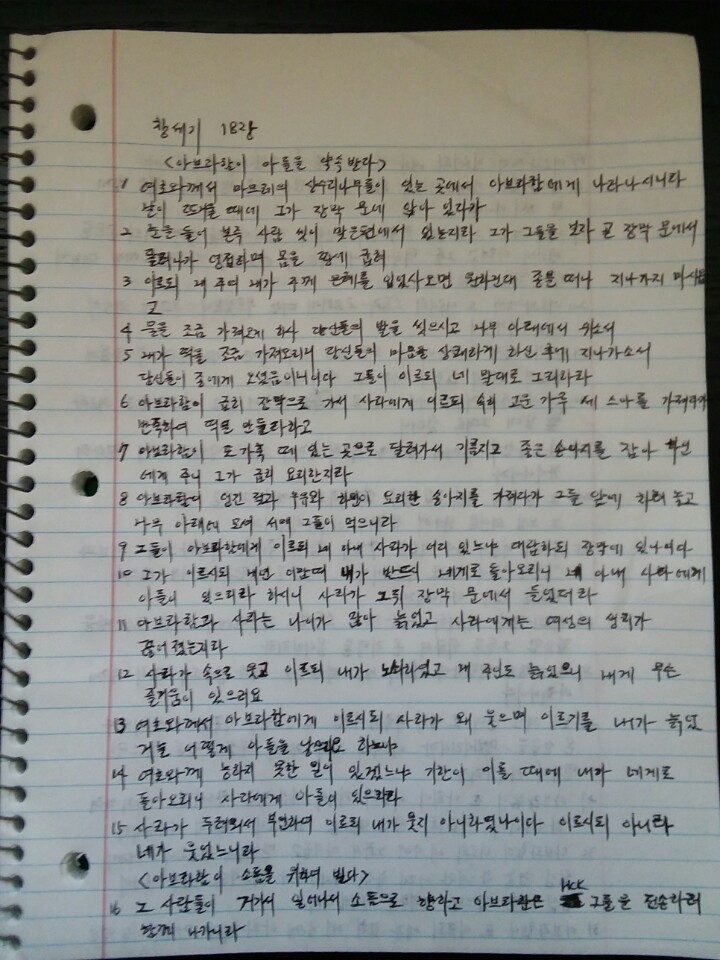 창세기 18장
<아브라함이 아들을 약속받다>
1 여호와께서 마므레의 상수리나무들이 있는 곳에서 아브라함에게 나타나시니라
날이 뜨거울 때에 그가 장막 문에 앉아 있다가
2 눈을 들어 본즉 사람 셋이 맞은편에서 있는지라 그가 그들을 보자 곧 장막 문에서
달려나가 영접하며 몸을 땅에 굽혀
3 이르되 내 주여 내가 주께 은혜를 입었사오면 원하건대 종을 떠나 지나가지 마시옵
고
4 물을 조금 가져오게 하사 당신들의 발을 씻으시고 나무 아래에서 쉬소서
5 내가 떡을 조금 가져오리니 당신들의 마음을 상쾌하게 하신 후에 지나가소서
당신들이 종에게 오셨음이니이다 그들이 이르되 네 말대로 그리하라
6 아브라함이 급히 장막으로 가서 사라에게 이르되 속히 고운 가루 세 스아를 가져다가
반죽하여 떡을 만들라하고
7 아브라함이 또 가축 떼 있는 곳으로 달려가서 기름지고 좋은 송아지를 잡아 하인
에게 주니 그가 급히 요리한지라
8 아브라함이 엉긴 젖과 우유와 하인이 요리한 송아지를 가져다가 그들 앞에 차려 놓고
나무 아래에 모셔 서매 그들이 먹으니라
9 그들이 아브라함에게 이르되 네 아내 사라가 어디 있느냐 대답하되 장막에 있나이다
10 그가 이르시되 내년 이맘때 내가 반드시 네게로 돌아오리니 네 아내 사라에게
아들이 있으리라 하시니 사라가 그 뒤 장막 문에서 들었더라
11 아브라함과 사라는 나이가 많아 늙었고 사라에게는 여성의 생리가
끊어졌는지라
12 사라가 속으로 웃고 이르되 내가 노쇠하였고 내 주인도 늙었으니 내게 무슨
즐거움이 있으리요
13 여호와께서 아브라함에게 이르시되 사라가 왜 웃으며 이르기를 내가 늙었
거늘 어떻게 아들을 낳으리요 하느냐
14 여호와께 능하지 못한 일이 있겠느냐 기한이 이를 때에 내가 네게로
돌아오리니 사라에게 아들이 있으리라
15 사라가 두려워서 부인하여 이르되 내가 웃지 아니하였나이다 이르시되 아니라
네가 웃었느니라
<아브라함이 소돔을 위하여 빌다>
16 그 사람들이 거기서 일어나서 소돔으로 향하고 아브라함은 그들을 전송하러
함께 나가니라